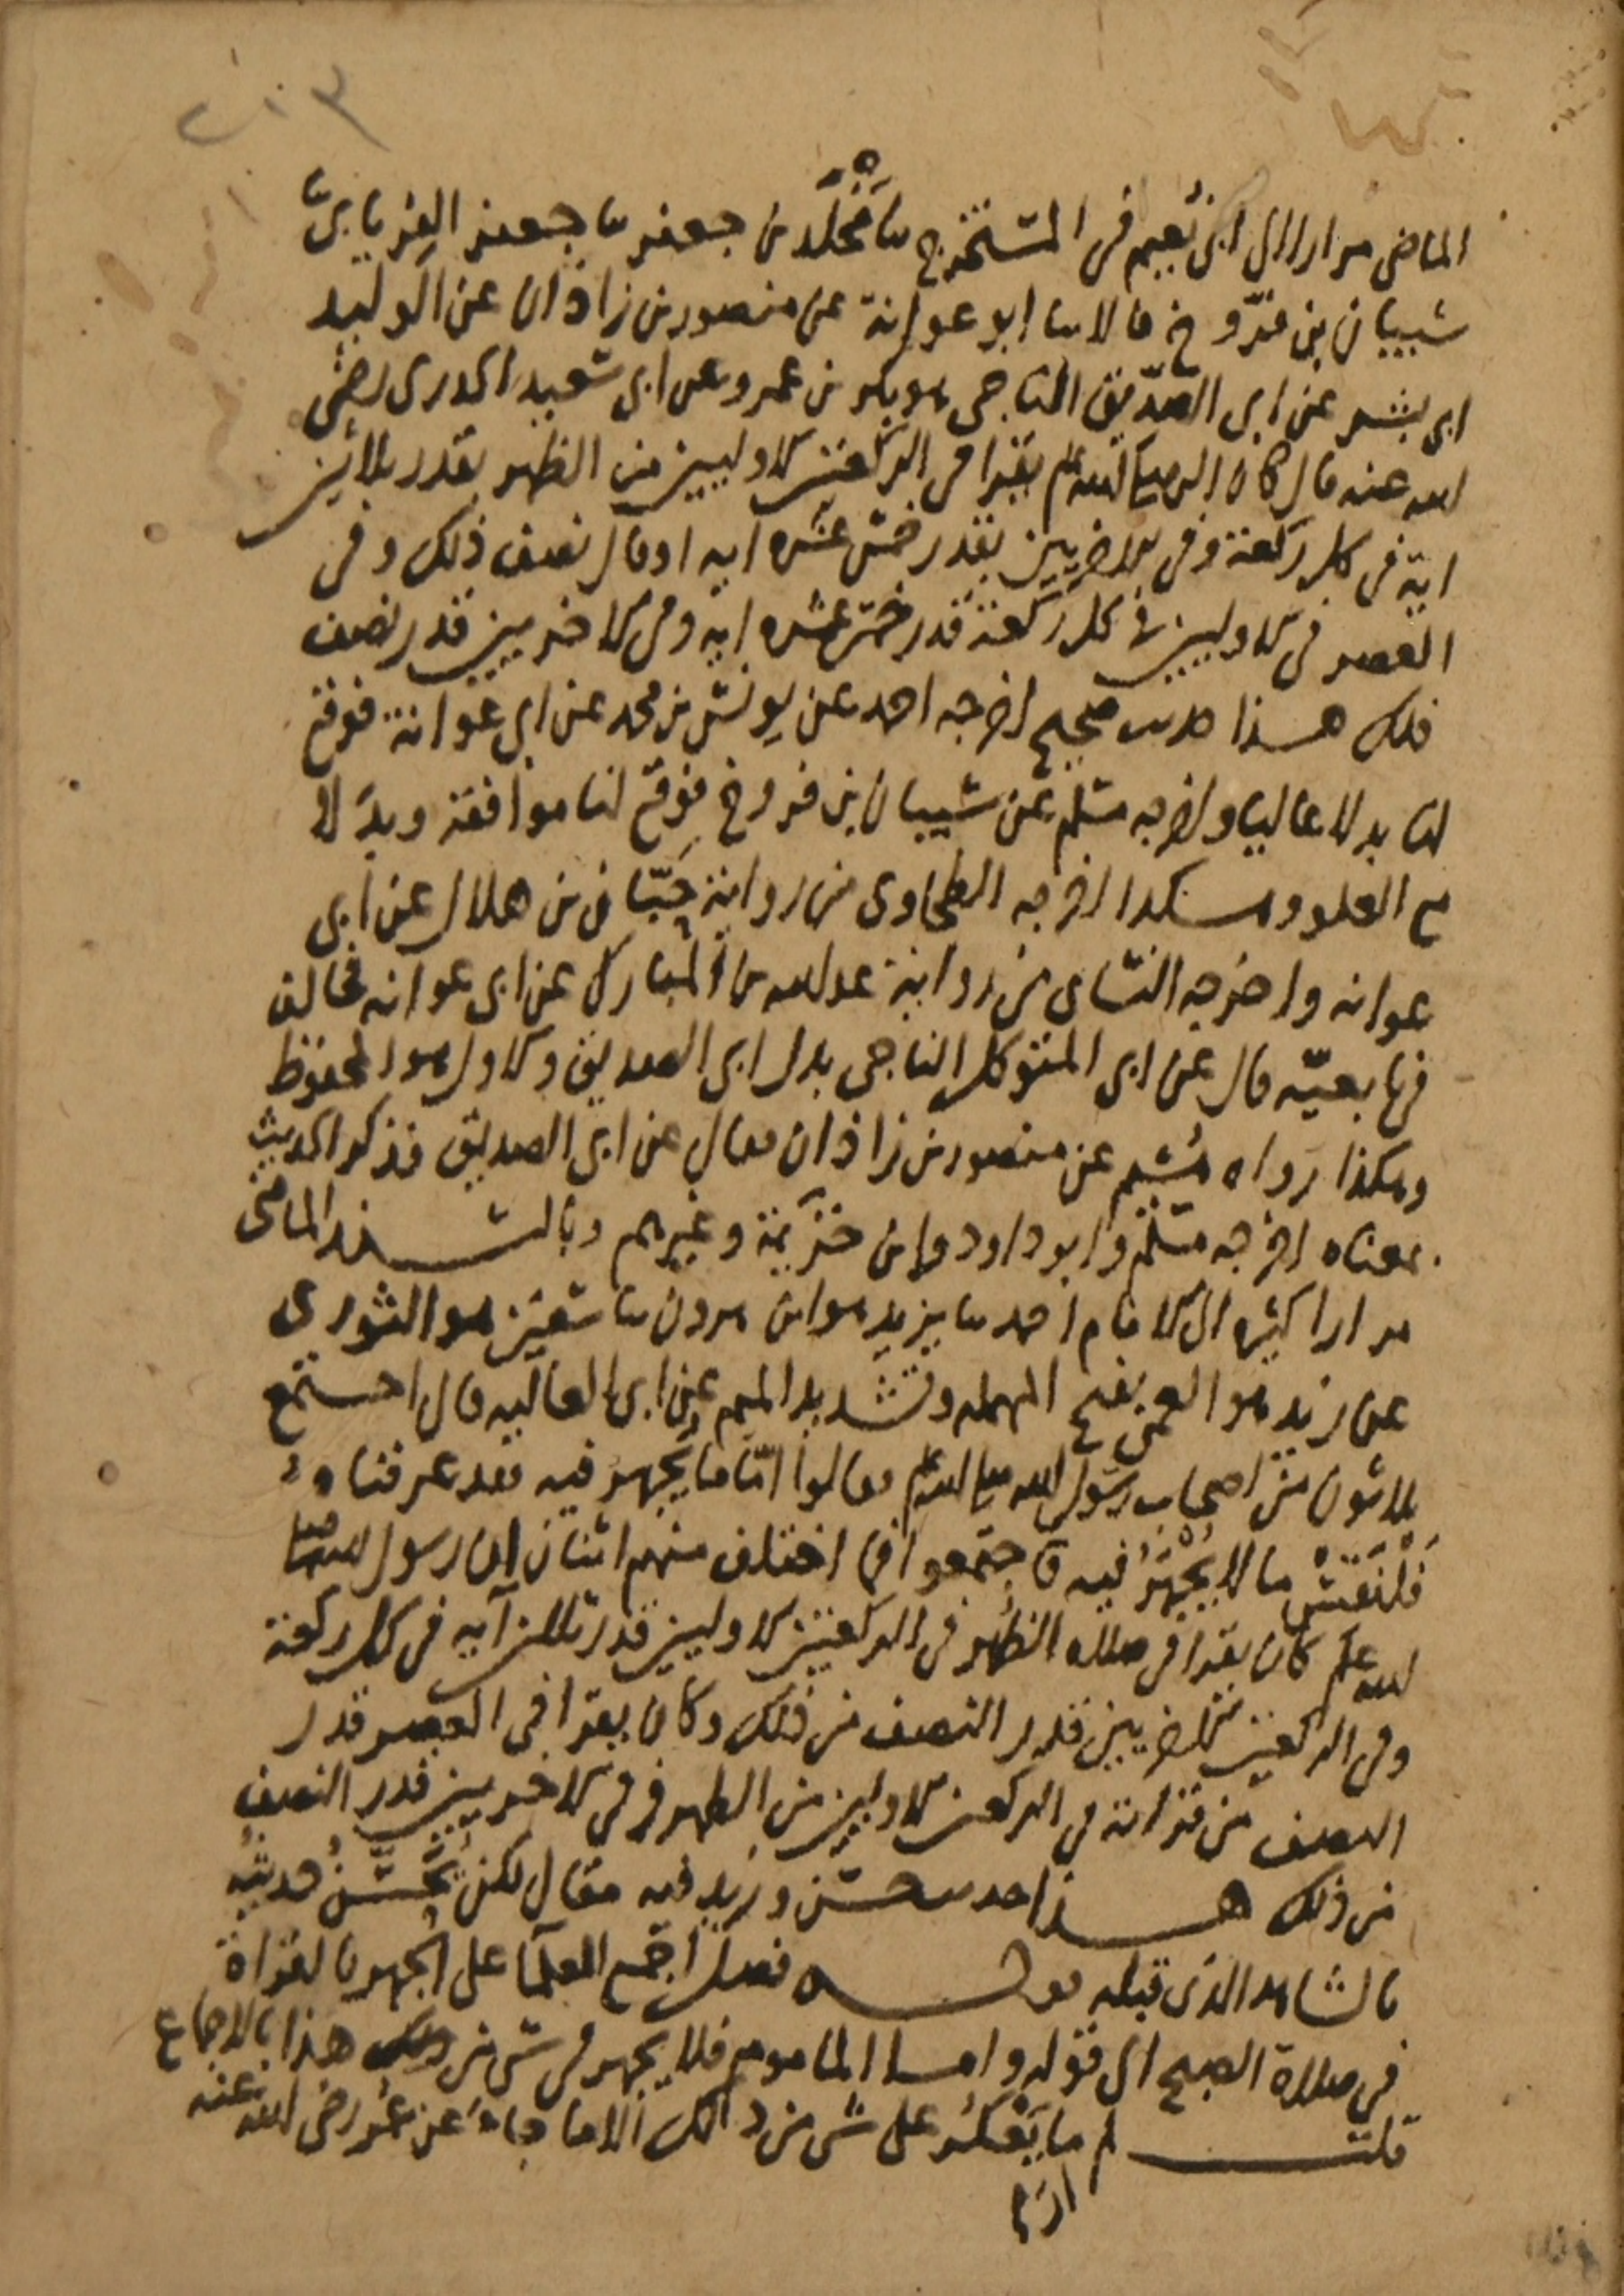 ٢٠٣
الماضي مرارا الى ابي نُعيم في المستخرج سا مَخْلَد بن جعفر سا جعفر الفريابي سا
شيبان بن فرّوخ قالا سا ابو عوانة عن منصور بن زاذان عن الوليد
ابي بشر عن ابي الصدّيق الناجي هو بكر بن عمرو عن ابي سعيد الخدري رضي
الله عنه قال كان النبي صلى الله عليه وسلم يقرا في الركعتين الاوليين من الظهر بقدر ثلاثين
اية في كل ركعة وفي الاخريين بقدر خمس عشرة اية او قال نصف ذلك وفي
العصر في الاوليين في كل ركعة قدر خمس عشرة اية وفي الاخريين قدر نصف
ذلك هذا حديث صحيح اخرجه احمد عن يونس بن محمد عن ابي عوانة فوقع
لنا بدلا عاليا واخرجه مسلم عن شيبان بن فروخ فوقع لنا موافقة وبدلا
مع العلو وهكذا اخرجه الطحاوي من رواية حَبّان بن هلال عن ابي
عوانه واخرجه النسائي من رواية عبد الله بن المبارك عن ابي عوانه فخالف
في تابعيّه قال عن ابي المتوكل الناجي بدل ابي الصديق والاول هو المحفوظ
وهكذا رواه هُشيم عن منصور بن زاذان فقال عن ابي الصديق فذكر الحديث
بمعناه اخرجه مسلم وابو داود وابن خزيمة وغيرهم وبالسند الماضي
مرارا كثيره الى الامام احمد سا يزيد هو ابن هرون سا سفين هو الثوري
عن زيد هو العمي بفتح المهمله وتشديد الميم عن ابي العاليه قال اجتمع
ثلاثون من اصحاب رسول الله صلى الله عليه وسلم فقالوا امّا ما يُجهر فيه فقد عرفناه
فَلْنَقِسْ ما لا يُجْهَرُ فيه فاجتمعوا فما اختلف منهم اثنان ان رسول الله صلى
الله عليه وسلم كان يقرا في صلاة الظُهر في الركعتين الاوليين قدر ثلثين آيه في كل ركعة
وفي الركعتين الاخريين قدر النصف من ذلك وكان يقرا في العصر قدر
النصف من قراته في الركعتين الاوليين من الظهر وفي الاخريين قدر النصف
من ذلك هذا حديث حسن وزيد فيه مقال لكن يُحَسَّنُ حديثه
بالشاهد الذي قبله قوله فصل اجمع العلما على الجهر بالقراة
في صلاة الصبح الى قوله واما الماموم فلا يجهر في شي من ذلك هذا بالاجماع
قلت لم ما يَعْكُر على شي من ذلك الا ما جاء عن عُمر رضي الله عنه